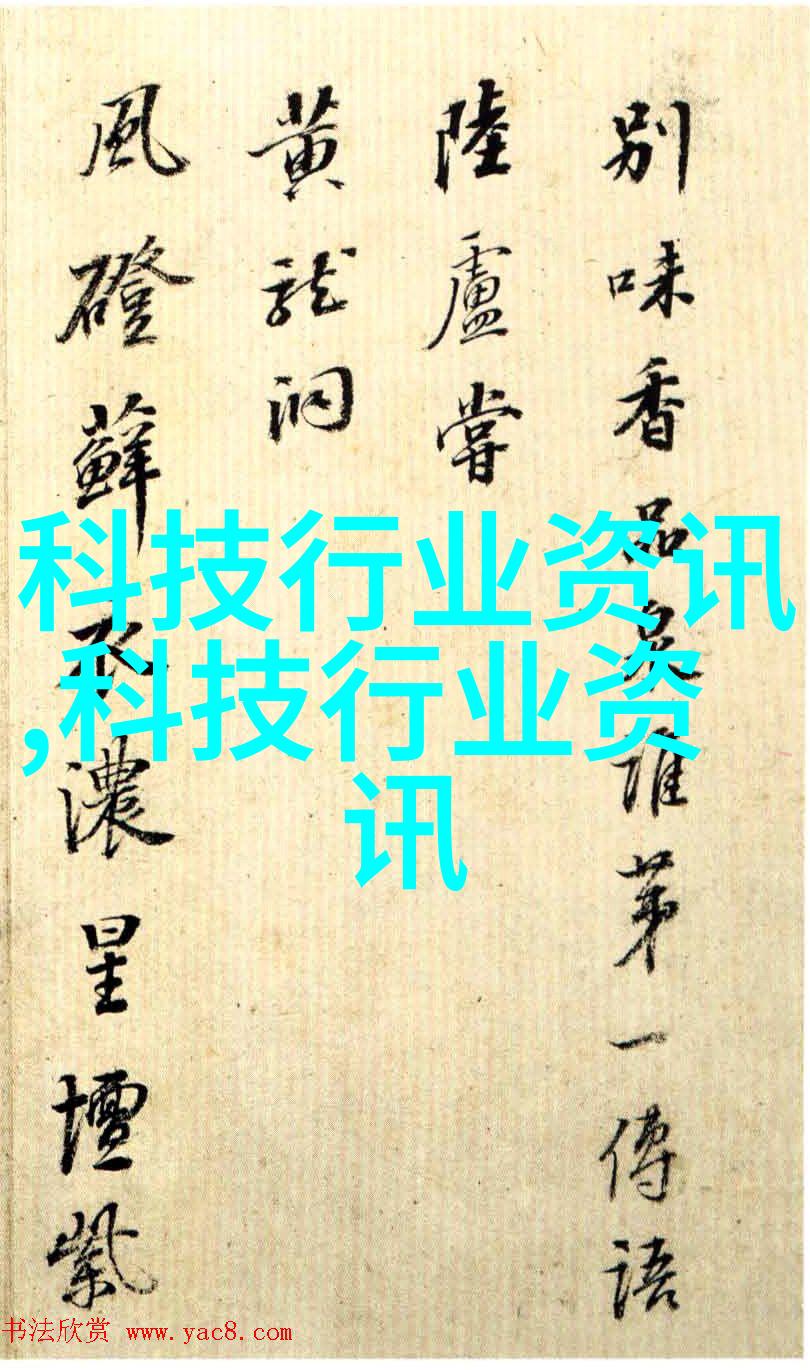 别味香品泉誰苐一傳語
陸盧嘗
黄龍洞
風磴蘚衣濃星壇紫
科技行业资讯
,科技行业资
讯
书法欣赏 www.yac8.com